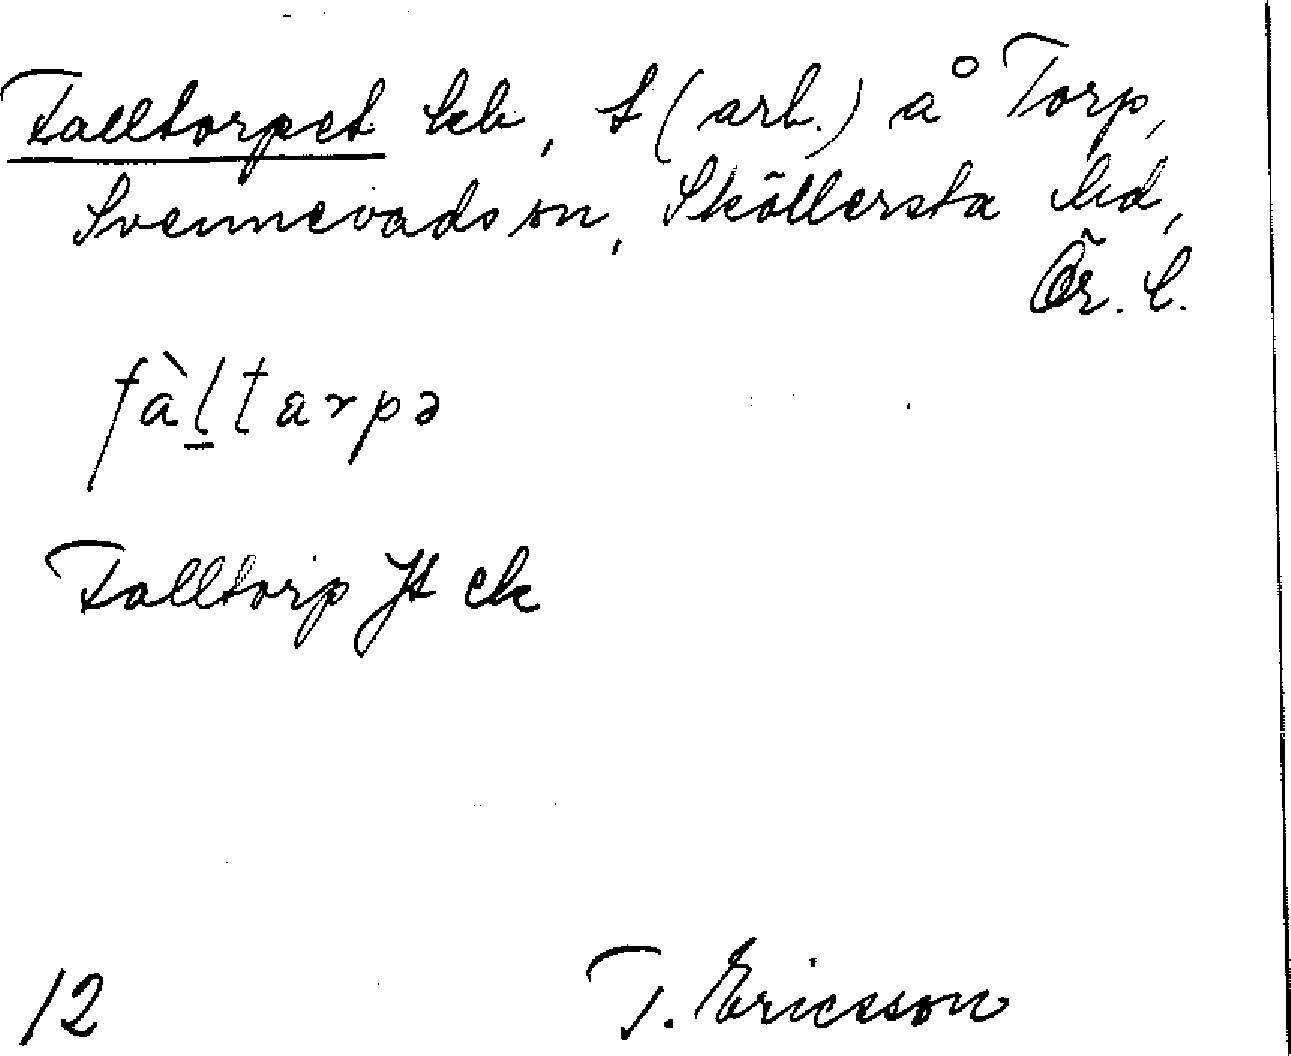 Falltorpet kb, t (arb.) å Torp,
Svennevads sn, Sköllersta hd,
Ör. l.
fàltarpə
Falltorp Jt ek
12 T. Ericsson